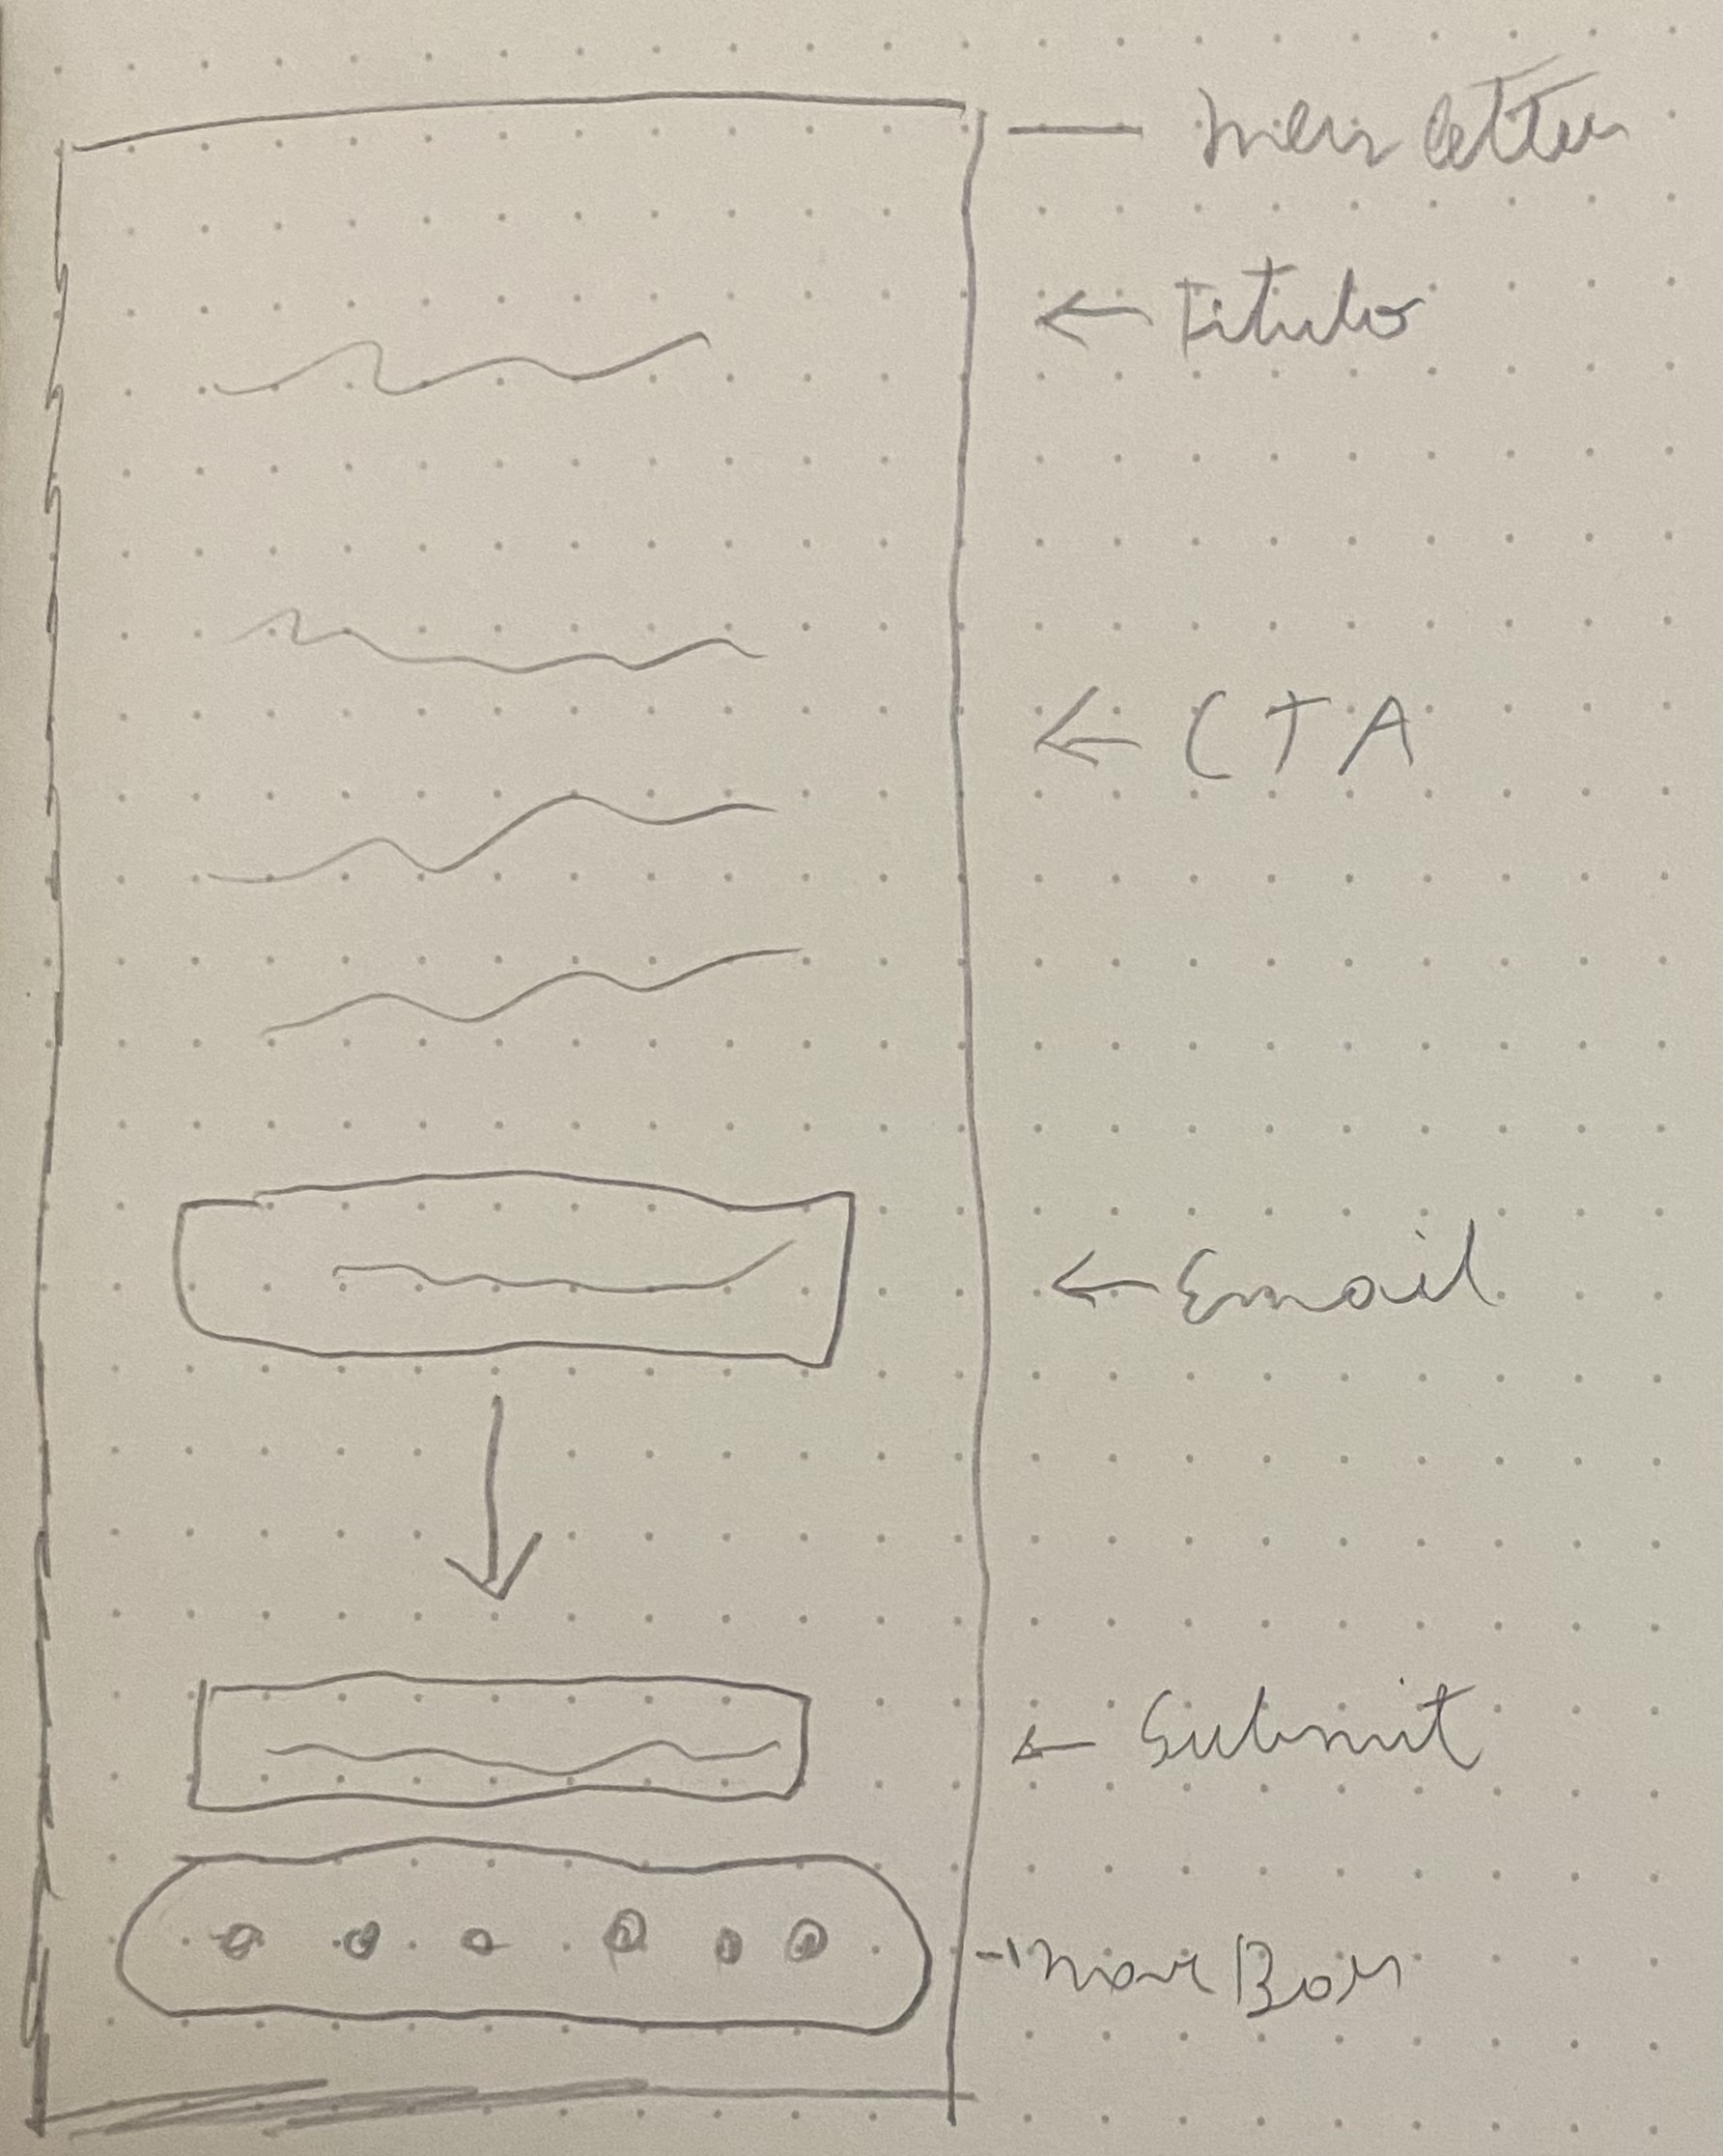 Newsletter
Titulo
CTA
Email
Submit